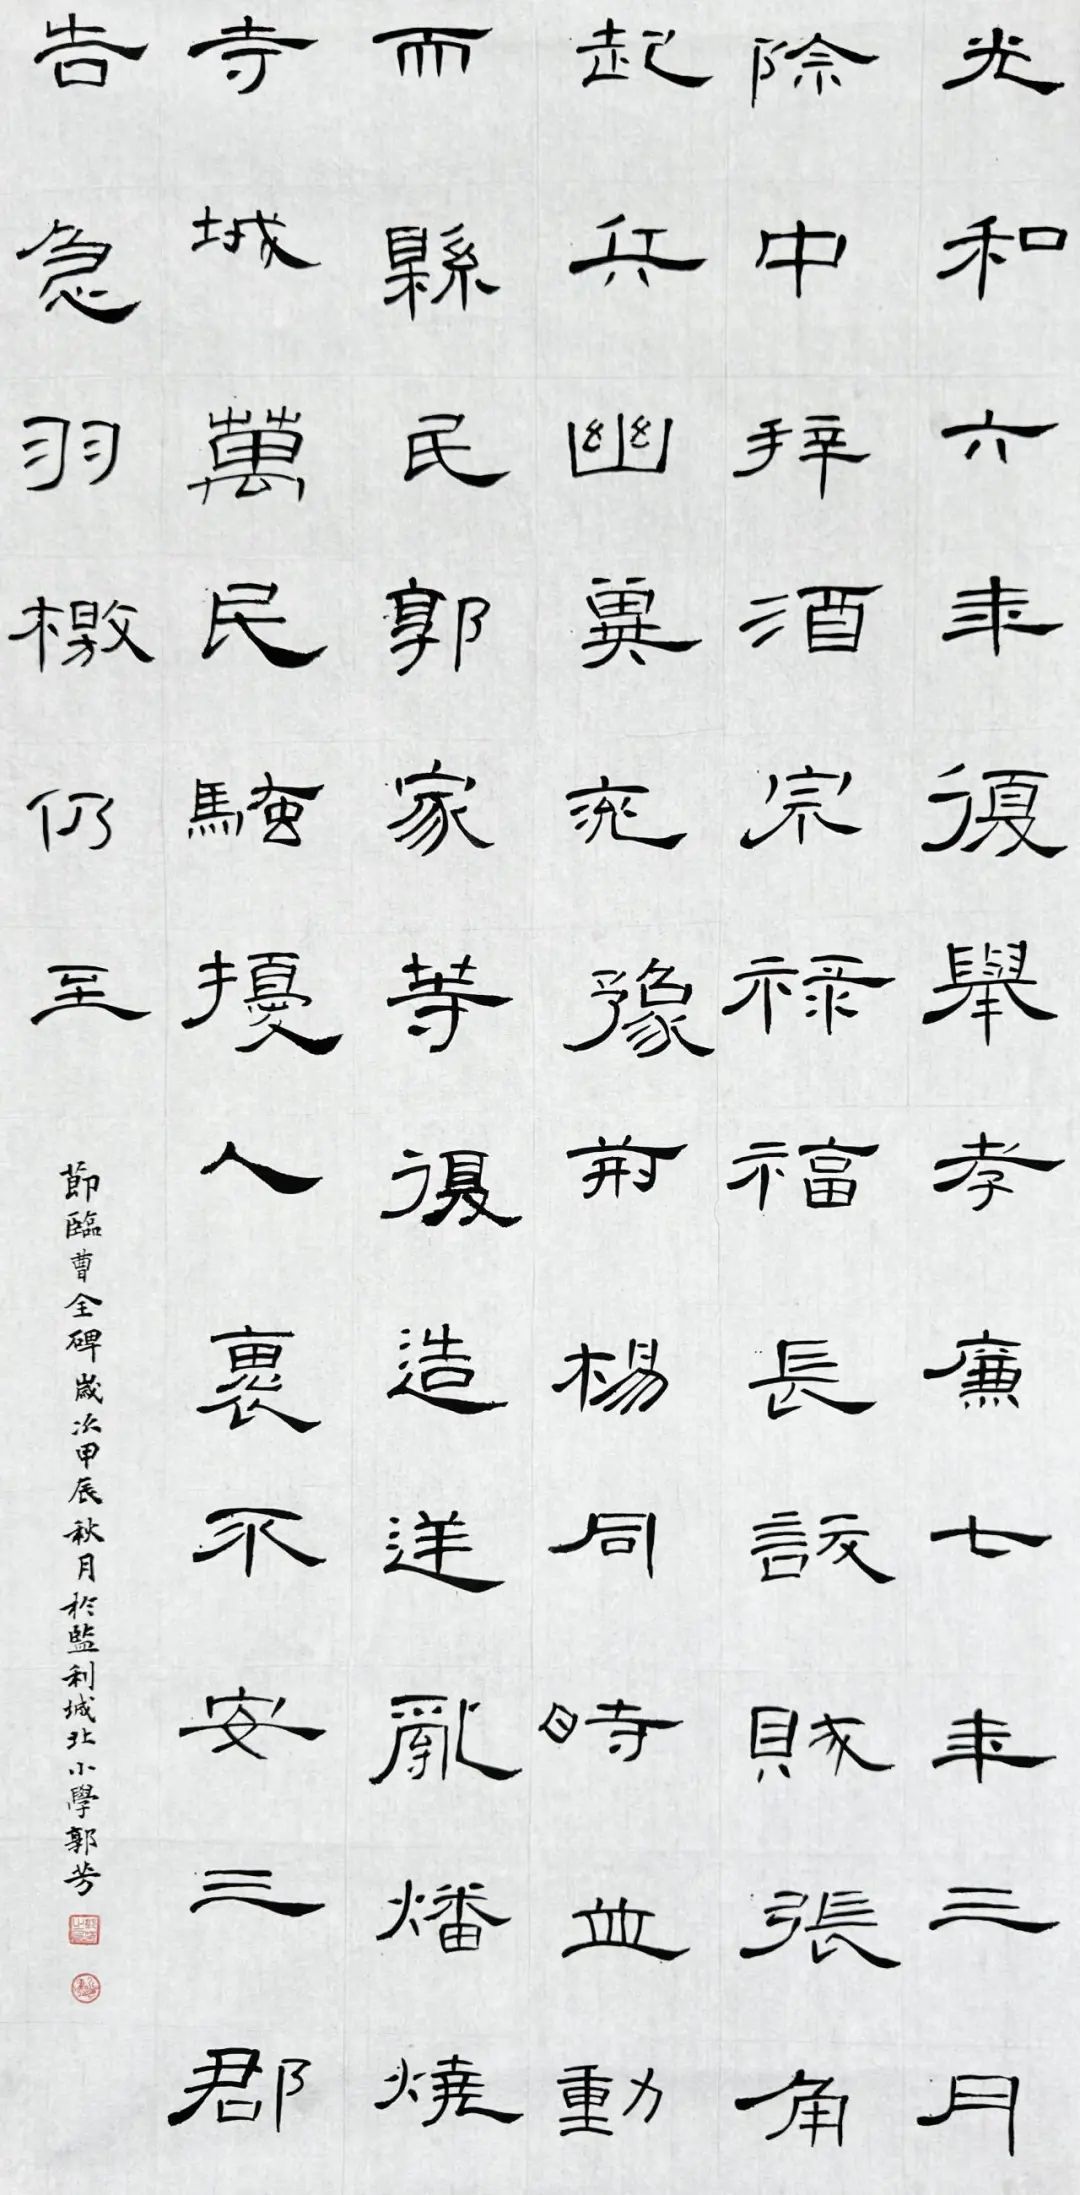 光和六年復舉孝廉七年三月
除郎中拜酒泉祿福長訞賊張角
起兵幽冀兗豫荊楊同時並動
而縣民郭家等復造逆亂燔燒
寺城萬民騷擾人裹不安三郡
告急羽檄仍至
節臨曹全碑歲次甲辰秋月於監利城北小學郭芳